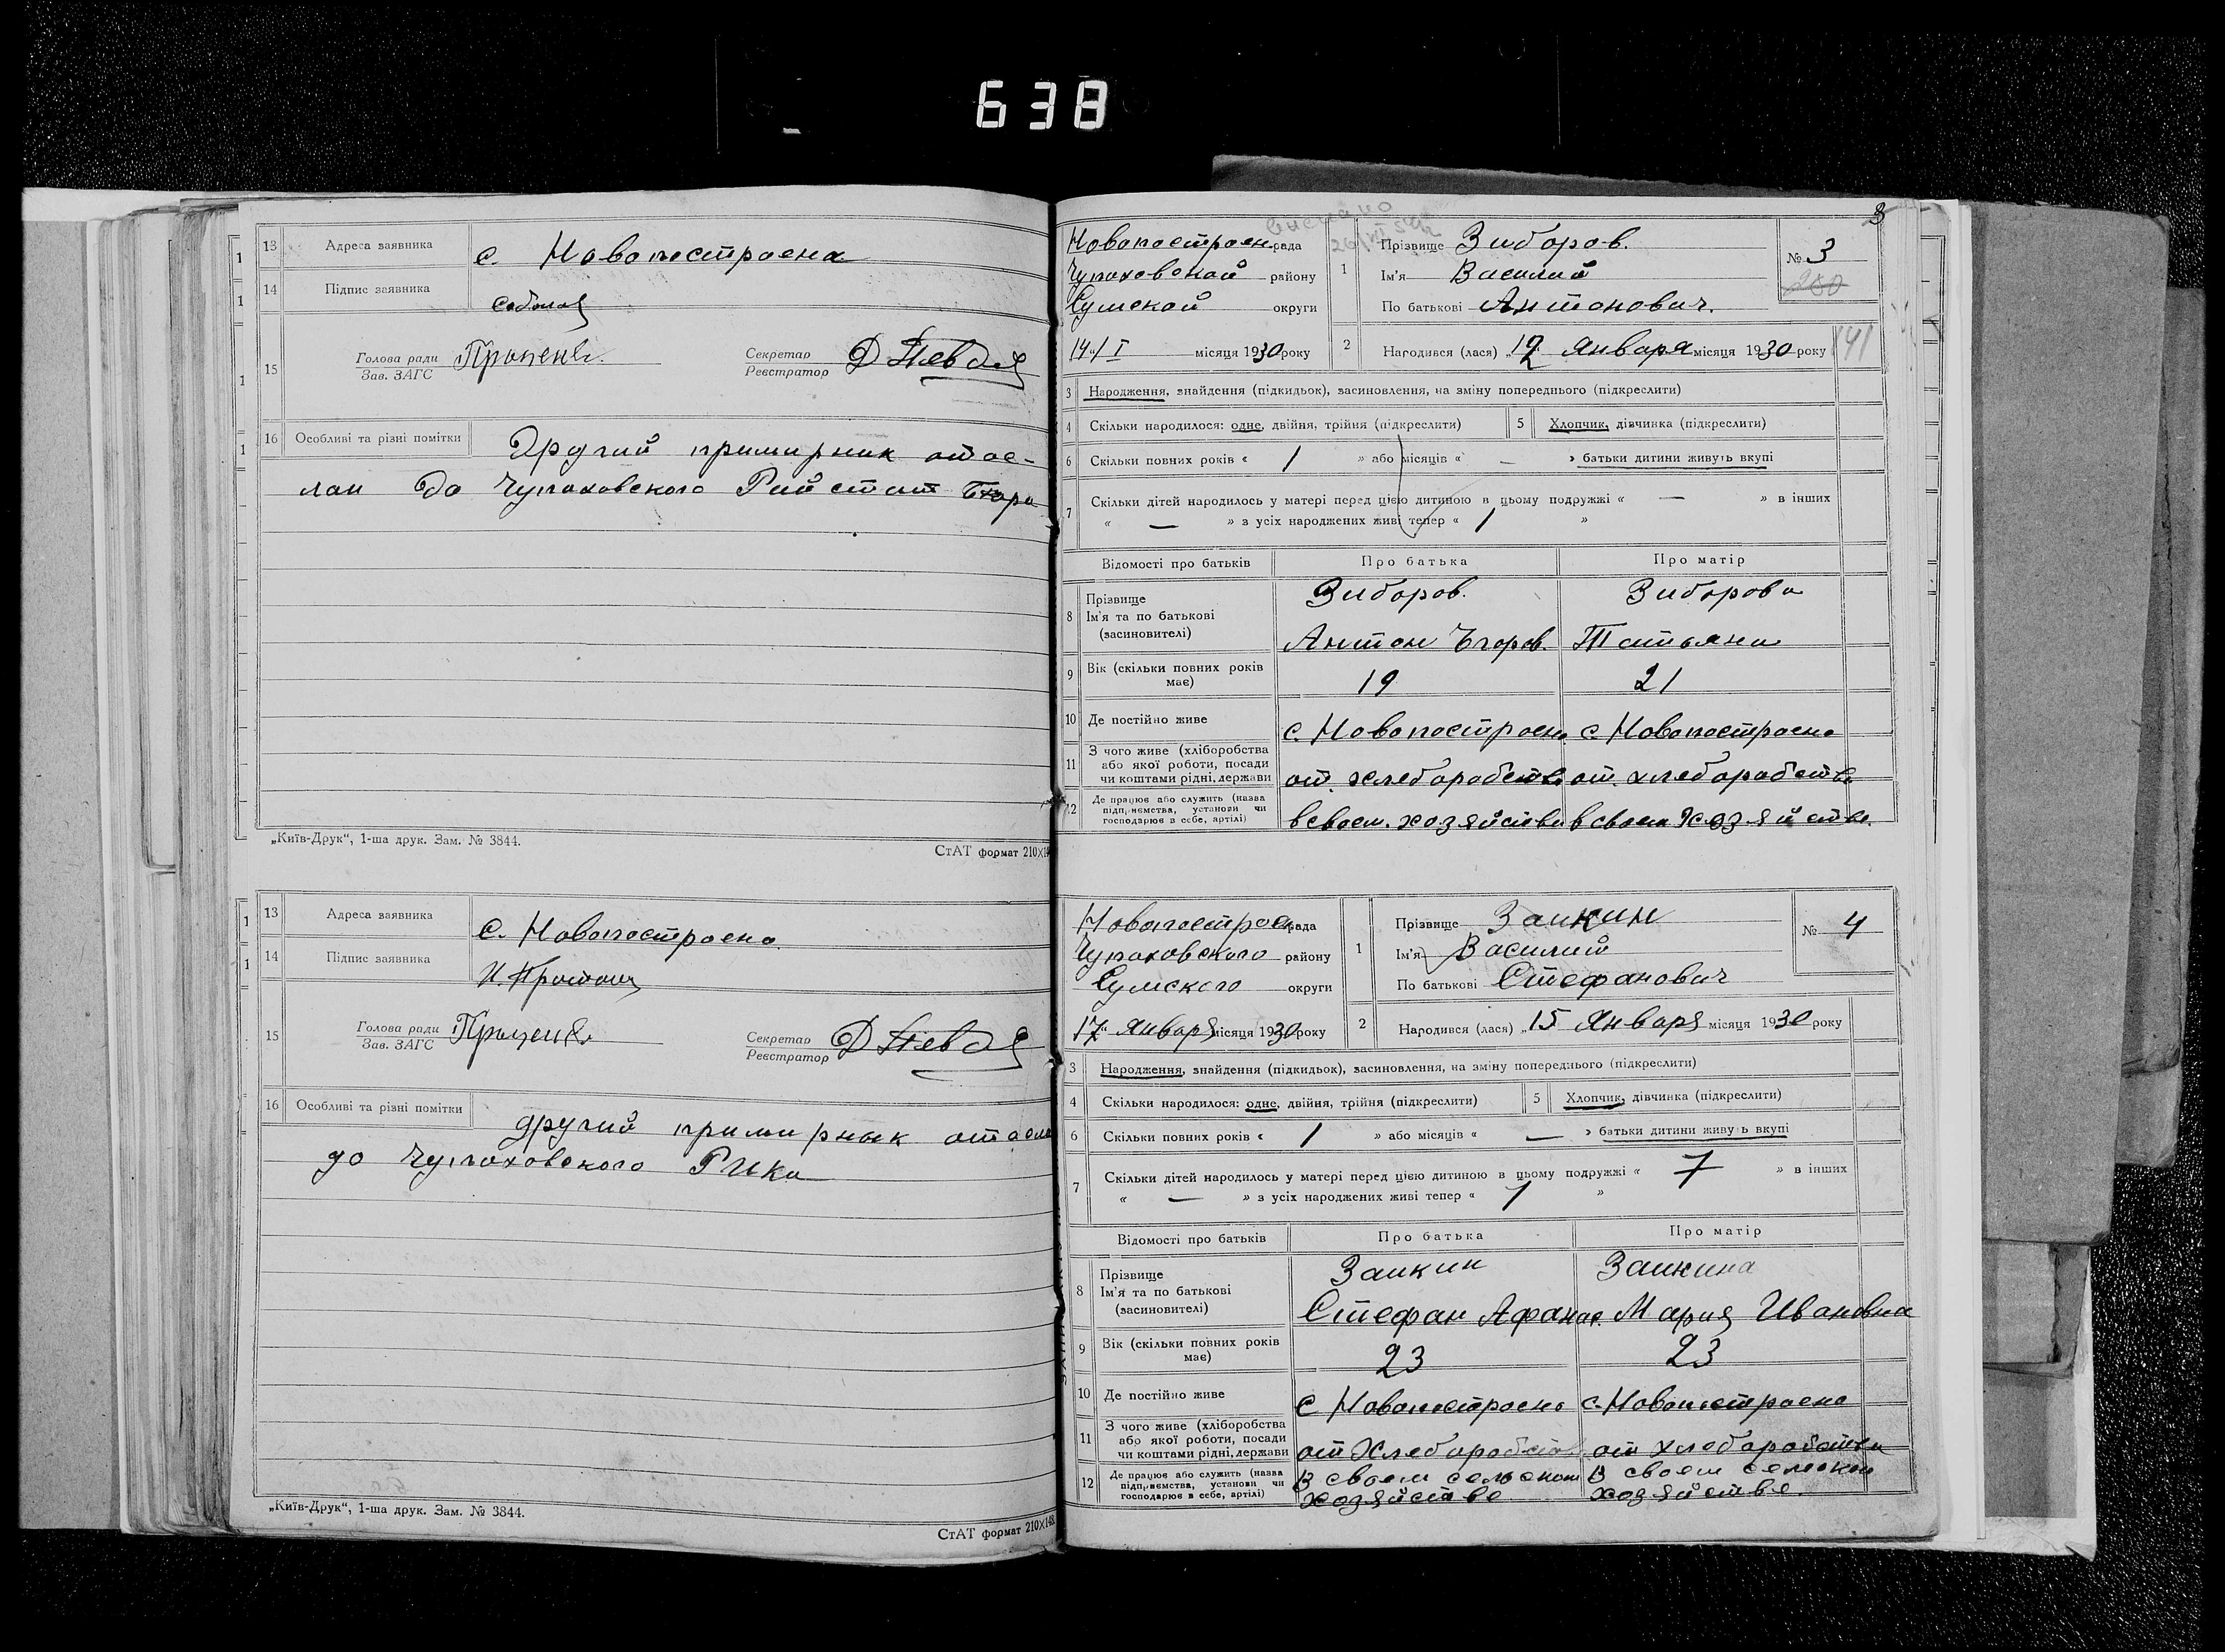 638
13 Адреса заявника с. Новопостроена
14 Підпис заявника
15 Голова ради Зав. ЗАГС Секретар Реєстратор
16 Особливі та різні помітки Другий примирник отос-
лан до Чупаховского Райстат Бюро
„Київ-Друк“, 1-ша друк. Зам. № 3844.
СтАТ формат 210×14
13 Адреса заявника с. Новопостроено
14 Підпис заявника
15 Голова ради Зав. ЗАГС Секретар Реєстратор
16 Особливі та різні помітки другий примирник отосла
до Чупаховского РИКа
„Київ-Друк“, 1-ша друк. Зам. № 3844.
СтАТ формат 210×148
3
Новопостроен. рада
Чупаховской району
Сумской округи
14/I місяця 1930 року
1 Прізвище Зиборов.
Ім'я Василий
По батькові Антонович.
№ 3
280
2 Народився (лася) „12 Января місяця 1930 року
141
3 Народження, знайдення (підкидьок), засиновлення, на зміну попереднього (підкреслити)
4 Скільки народилося: одне, двійня, трійня (підкреслити) 5 Хлопчик, дівчинка (підкреслити)
6 Скільки повних років « 1 » або місяців « — » батьки дитини живуть вкупі
7 Скільки дітей народилось у матері перед цією дитиною в цьому подружжі « — » в інших
« — » з усіх народжених живі тепер « 1 »
Відомості про батьків Про батька Про матір
8 Прізвище Ім'я та по батькові (засиновителі) Зиборов. Зиборова
Антон Егоров. Татьяна
9 Вік (скільки повних років має) 19 21
10 Де постійно живе с. Новопостроено с. Новопостроено
11 З чого живе (хліборобства або якої роботи, посади чи коштами рідні, держави от. хлеборобства от. хлеборобства
12 Де працює або служить (назва підприємства, установи чи господарює в себе, артілі) в своем. хозяйстве в своем хозяйстве.
Новопостроен рада
Чупаховского району
Сумского округи
17 Января місяця 1930 року
1 Прізвище Заикин
Ім'я Василий
По батькові Стефанович
№ 4
2 Народився (лася) „15 Января місяця 1930 року
3 Народження, знайдення (підкидьок), засиновлення, на зміну попереднього (підкреслити)
4 Скільки народилося: одне, двійня, трійня (підкреслити) 5 Хлопчик, дівчинка (підкреслити)
6 Скільки повних років « 1 » або місяців « — » батьки дитини живуть вкупі
7 Скільки дітей народилось у матері перед цією дитиною в цьому подружжі « » в інших
« — » з усіх народжених живі тепер « 1 »
Відомості про батьків Про батька Про матір
8 Прізвище Ім'я та по батькові (засиновителі) Заикин Заикина
Стефан Афанас. Мария Ивановна
9 Вік (скільки повних років має) 23 23
10 Де постійно живе с Новопостроено с. Новопостроено
11 З чого живе (хліборобства або якої роботи, посади чи коштами рідні, держави от Хлеборобства от хлеборобства
12 Де працює або служить (назва підприємства, установи чи господарює в себе, артілі) В своем сельском В своем сельском
хозяйстве хозяйстве.